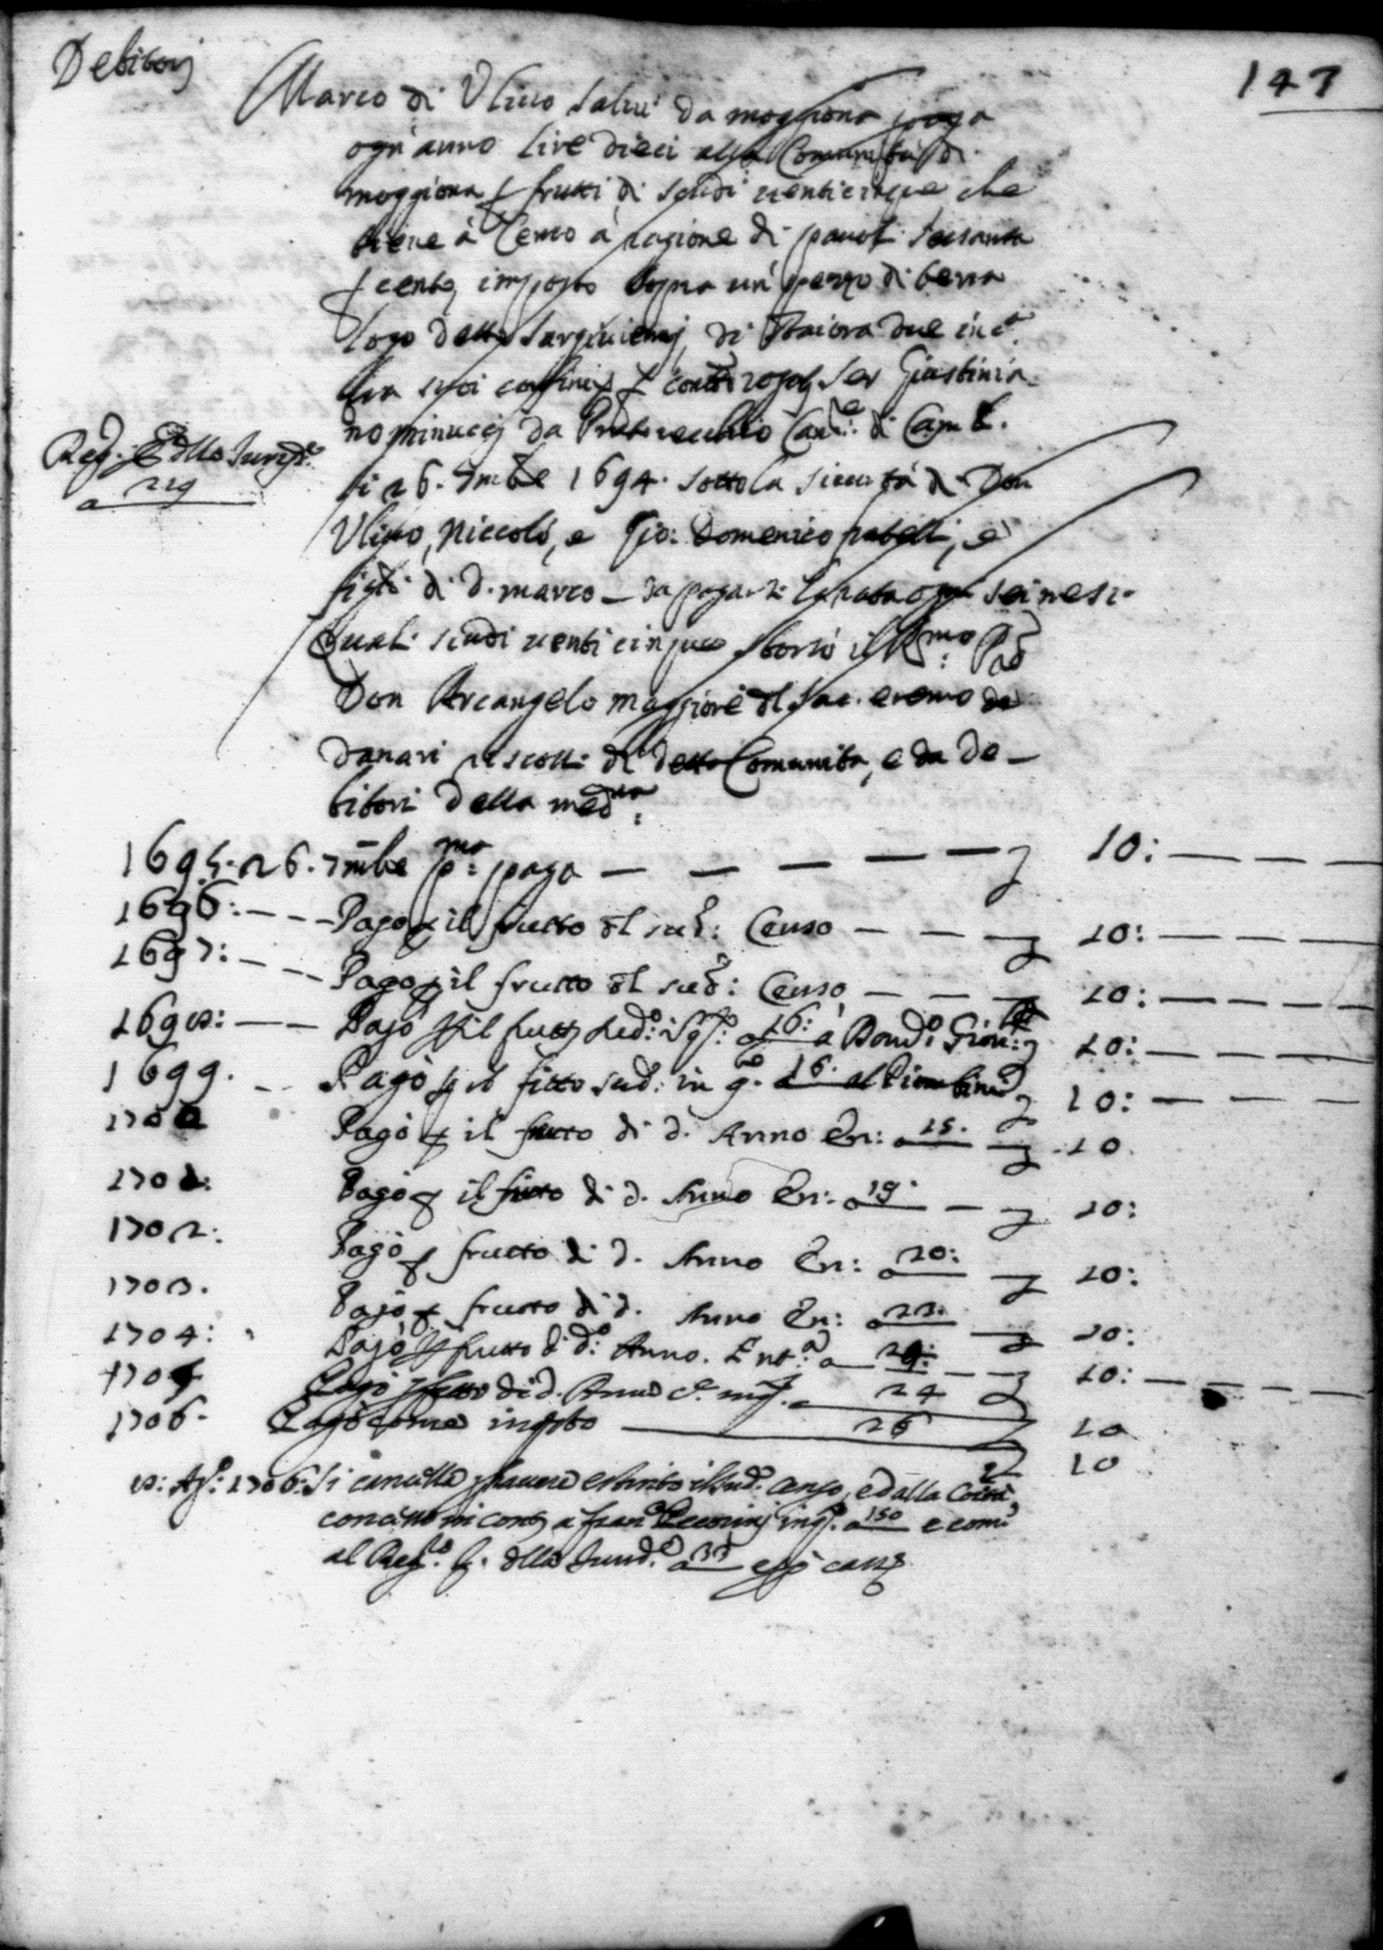 Debitorj
147
Marco di Ulivo Salvi da moggiona paga
ogn'anno Lire Dieci alla Comunità di
moggiona p frutti di scudi venticinque che
tiene à Censo à ragione di pavoli sessanta
p cento, imposto sopra un' pezzo di terra
logo detto di Staiora due in c.ª
fra suoi confini p contº rogº Ser Giustinia-
no minuccj da Pratovecchio Canc.e di
li 26. 7mbre 1694. sotto la sicurtà di Don
Ulivo, Niccolò, e Gio: Domenico fratelli, e
figli di d. marco – da pagarsi la rata ogni sei mesi.
Quali scudi venticinque sborsò il R.mo Pre
Don Arcangelo maggiore dl Sac. eremo da
danari riscotti di detta Comunità, e da De-
bitori della med.ma
Reg.
a 229
1695. 26. 7mbe p.ma paga — — — — — 10: — — —
1696: - - - Pagò p il frutto dl sud: Censo — — — 10: — — —
1697: - - - Pagò p il frutto dl sud: Censo — — — 10: — — —
1698: — — Pagò p il frutto sud.º 16: à 10: — — —
1699. - - Pagò p il fitto sud: in q.º a 16. al 10: — — —
1700 Pagò p il frutto di d. Anno En: a 15. — 10.
1701: Pagò p il frutto di d. Anno En: a 19. — 10:
1702: Pagò p frutto di d. Anno En: a 20: — 10:
1703. Pagò p frutto di d. Anno En: a 23. — 10:
1704: Pagò p frutto di d.º Anno. Ent.ª a — — 10: — — —
1705 Pagò p frutto di d. Anno 24 10
1706. Pagò come in qsto 26 10
8: Ag.º 1706: Si cancella p havere estinto il sud.º censo, e dalla
a fran.º a 150 e
al Reg.º a 33